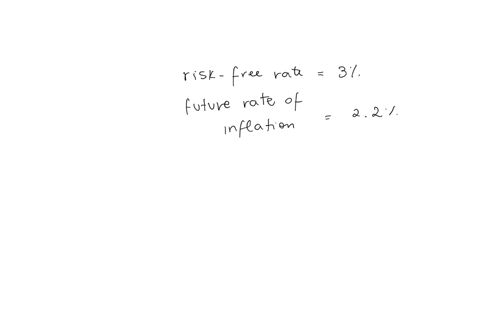 risk-free rate = 3%.
future rate of
inflation = 2.2%.